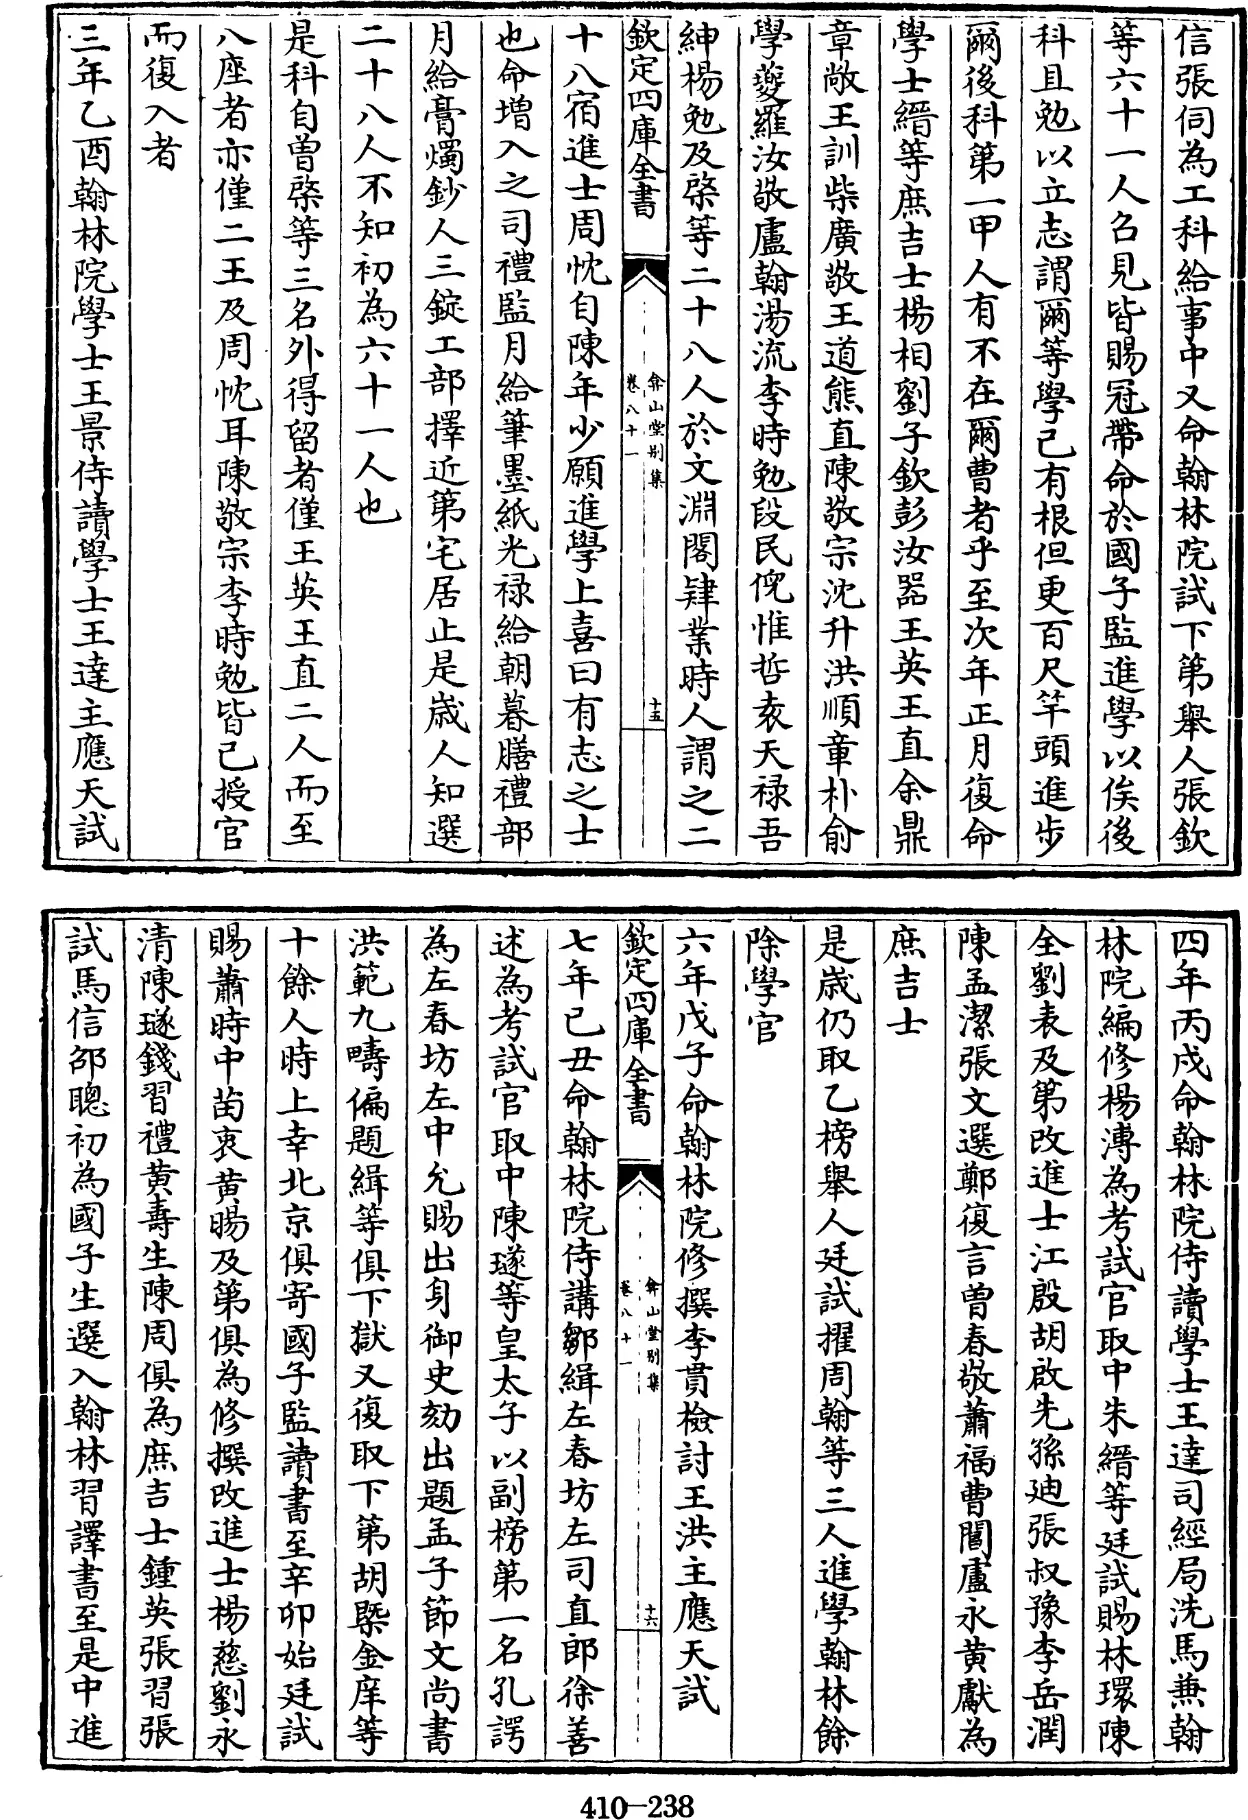 信張伺為工科給事中又命翰林院試下第舉人張欽
等六十一人召見皆賜冠帶命於國子監進學以俟後
科且勉以立志謂爾等學已有根但更百尺竿頭進步
爾後科第一甲人有不在爾曹者乎至次年正月復命
學士縉等庶吉士楊相劉子欽彭汝器王英王直余鼎
章敞王訓柴廣敬王道熊直陳敬宗沈升洪順章朴俞
學夔羅汝敬盧翰湯流李時勉段民倪惟哲袁天禄吾
紳楊勉及棨等二十八人於文淵閣肄業時人謂之二
欽定四庫全書
弇山堂别集
卷八十一
十五
十八宿進士周忱自陳年少願進學上喜曰有志之士
也命増入之司禮監月給筆墨紙光禄給朝暮膳禮部
月給膏燭鈔人三錠工部擇近第宅居止是歳人知選
二十八人不知初為六十一人也
是科自曾棨等三名外得留者僅王英王直二人而至
八座者亦僅二王及周忱耳陳敬宗李時勉皆已授官
而復入者
三年乙酉翰林院學士王景侍讀學士王達主應天試
四年丙戌命翰林院侍讀學士王達司經局洗馬兼翰
林院編修楊溥為考試官取中朱縉等廷試賜林環陳
全劉表及第改進士江殷胡啟先孫迪張叔豫李岳潤
陳孟潔張文選鄭復言曾春敬蕭福曹閶盧永黄獻為
庶吉士
是歳仍取乙榜舉人廷試擢周翰等三人進學翰林餘
除學官
六年戊子命翰林院修撰李貫檢討王洪主應天試
欽定四庫全書
弇山堂别集
卷八十一
十六
七年己丑命翰林院侍講鄒緝左春坊左司直郎徐善
述為考試官取中陳璲等皇太子以副榜第一名孔諤
為左春坊左中允賜出身御史劾出題孟子節文尚書
洪範九疇偏題緝等俱下獄又復取下第胡槩金庠等
十餘人時上幸北京俱寄國子監讀書至辛卯始廷試
賜蕭時中苗衷黄暘及第俱為修撰改進士楊慈劉永
清陳璲錢習禮黄壽生陳周俱為庶吉士鍾英張習張
試馬信邵聰初為國子生選入翰林習譯書至是中進
410—238